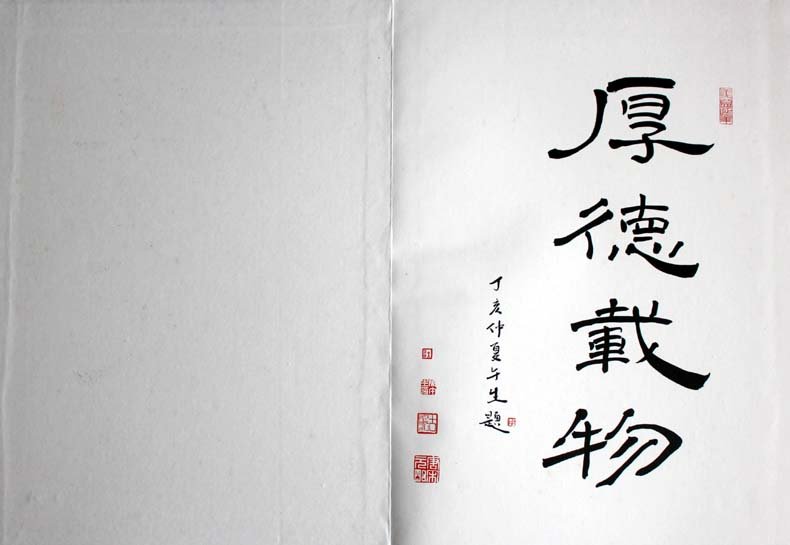 厚德載物
丁亥仲夏午生題